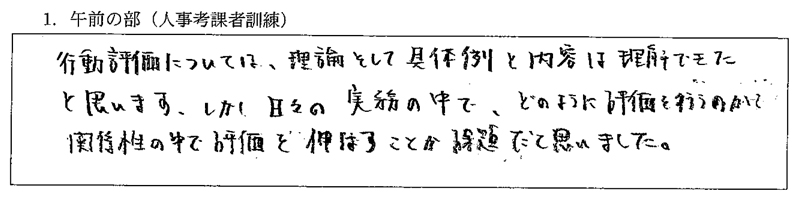 1. 午前の部（人事考課者訓練）
行動評価については、理論として具体例と内容は理解できた
と思います、しかし日々の実務の中で、どのように評価を行うのかて
関係性の中で評価を伸ばすことか課題だて思いました。